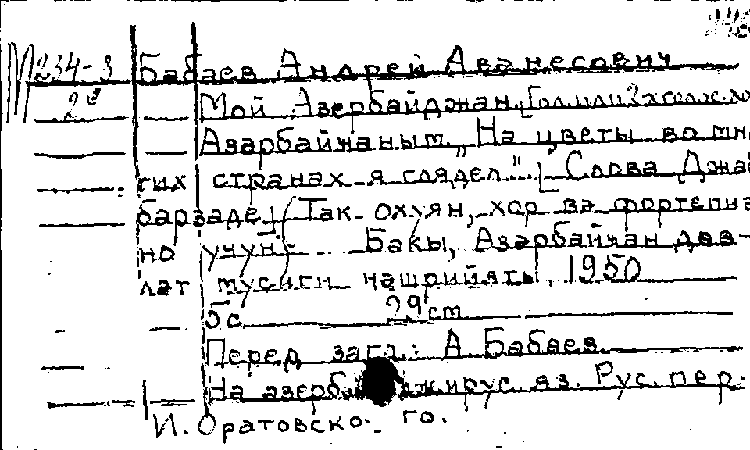 М234-3 Бабаев Андрей Аванесович
2э Мой Азербайджан,
Азәрбайҹаным. „На цветы во мно
гих странах я глядел". [Слова Джа
барзаде] (Так охуян, хор вә фортепиа
но учун). Бакы, Азәрбайҹан дөв-
лат мусиги нәшрийяты, 1950
5с. 29 см
Перед загл.: А. Бабаев.
На азерб. и рус. яз. Рус. пер.
И. Оратовско- го.